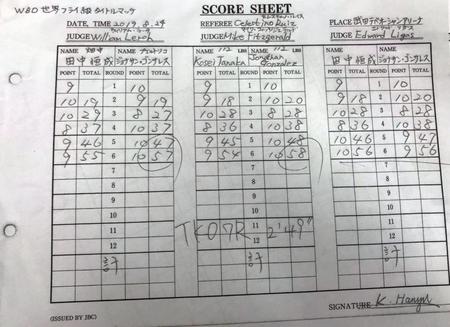 SCORE SHEET
WBO世界フライ級タイトルマッチ
DATE, TIME 2019. 8.24 REFEREE Celestino Ruiz PLACE 武田テバオーシャンアリーナ
JUDGE William Lerch JUDGE Mike Fitzgerald JUDGE Edward Ligas
NAME 田中恒成 NAME ジョナサン・ゴンサレス NAME 112 LBS Kosei Tanaka NAME 112 LBS Jonathan Gonzalez NAME 田中恒成 NAME ジョナサン・ゴンサレス
POINT TOTAL ROUND POINT TOTAL POINT TOTAL ROUND POINT TOTAL POINT TOTAL ROUND POINT TOTAL
9 1 10 9 1 10 9 1 10
10 19 2 9 19 9 18 2 10 20 9 18 2 10 20
10 29 3 8 27 10 28 3 8 28 10 28 3 8 28
8 37 4 10 37 8 36 4 10 38 8 36 4 10 38
9 46 5 10 47 9 45 5 10 48 10 46 5 9 47
9 55 6 10 57 9 54 6 10 58 10 56 6 9 56
7 7 7
8 8 8
9 9 9
10 10 10
11 TKO 7R 11 2'49" 11
12 12 12
計 計 計
(ISSUED BY JBC) SIGNATURE